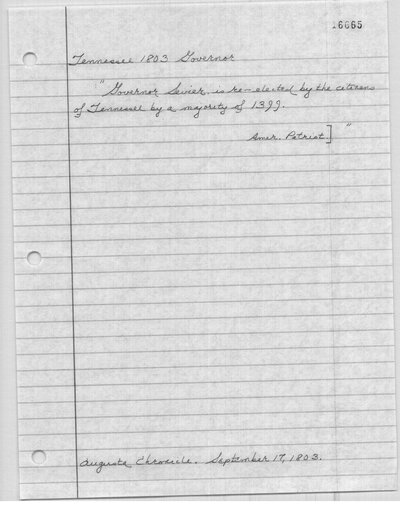 16665
Tennessee 1803 Governor
"Governor Sevier is re-elected by the citizens
of Tennessee by a majority of 1399.
Amer. Patriot.] "
Augusta Chronicle. September 17, 1803.